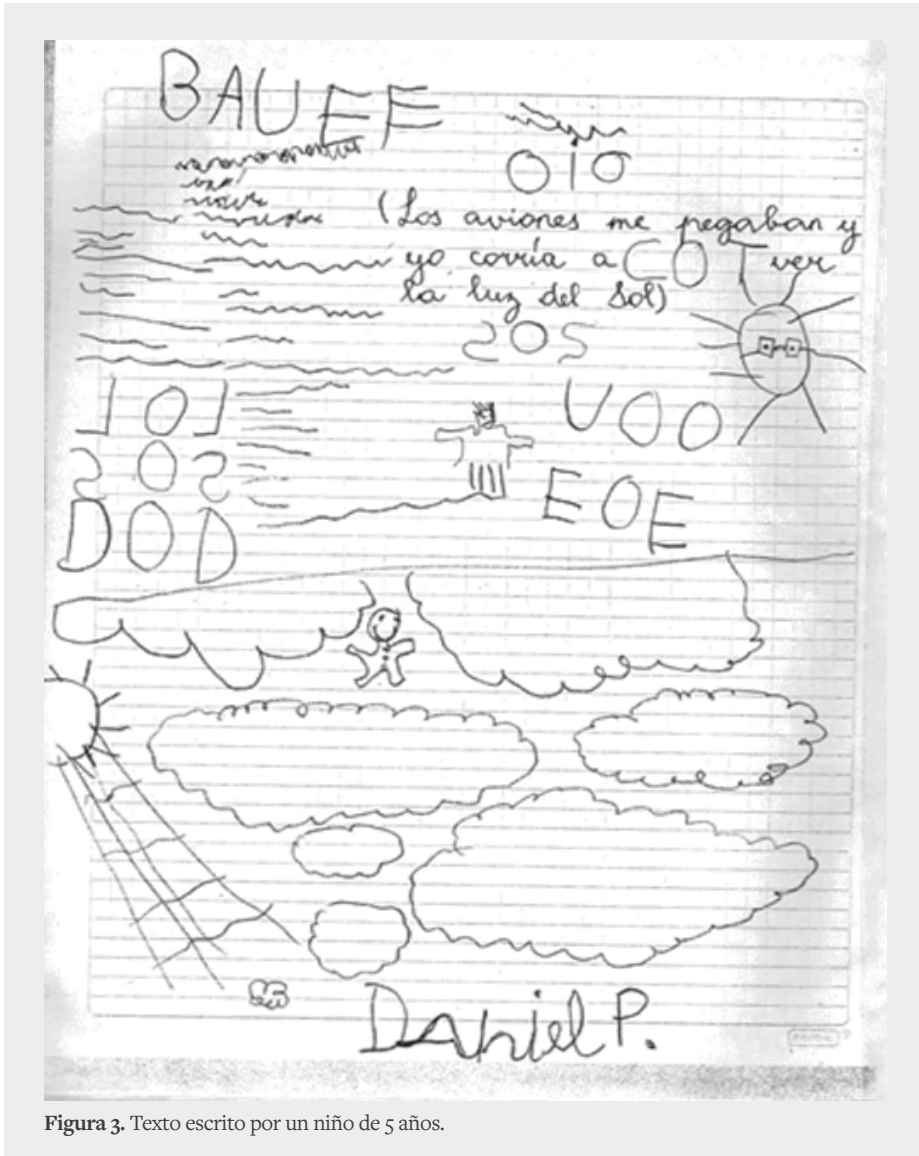 BAUEF
OIO
(Los aviones me pegaban y
yo corría a COT ver
la luz del Sol)
SOS
LOL
UOO
SOS
EOE
DOD
Daniel P.
Figura 3. Texto escrito por un niño de 5 años.